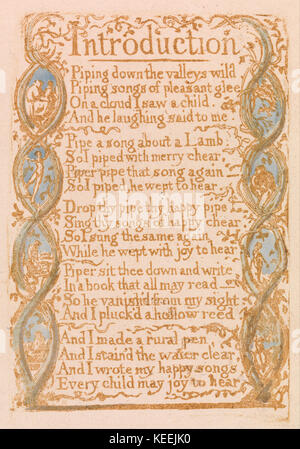 Introduction
Piping down the valleys wild
Piping songs of pleasant glee
On a cloud I saw a child.
And he laughing said to me.
Pipe a song about a Lamb;
So I piped with merry chear,
Piper pipe that song again—
So I piped, he wept to hear.
Drop thy pipe thy happy pipe
Sing thy songs of happy chear,
So I sung the same again
While he wept with joy to hear
Piper sit thee down and write
In a book that all may read—
So he vanish'd from my sight.
And I pluck'd a hollow reed.
And I made a rural pen,
And I stain'd the water clear,
And I wrote my happy songs
Every child may joy to hear
alamy
Image ID: KEEJK0
www.alamy.com